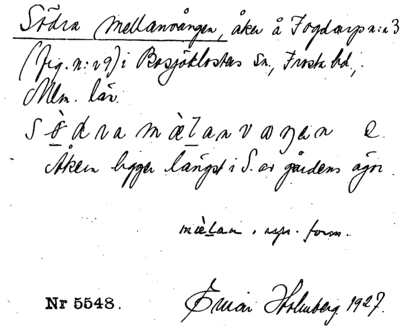 Södra mellanvången, åker å Fogdarp n:r 3
(fig. n:r 9) i Bosjöklosters Sn, Frosta hd,
Mlm. län.
Södra mälanvaŋen e.
Åkern ligger längst i S. av gårdens ägor.
mälan, nyr. form.
Nr 5548. Einar Holmberg 1927.